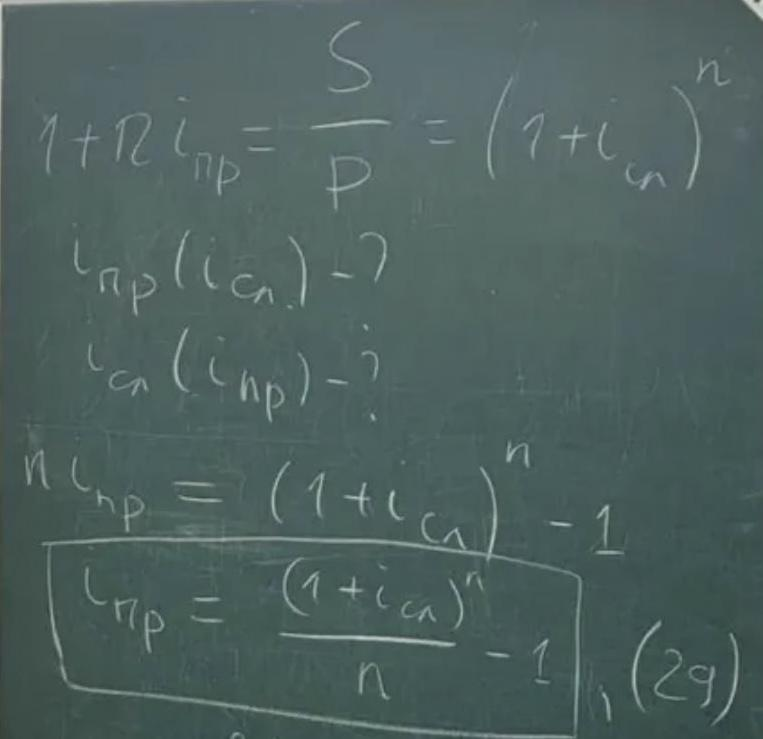 1+n i_пр = S/P = (1+i_сл)^n
i_пр(i_сл) - ?
i_сл(i_пр) - ?
n i_пр = (1+i_сл)^n - 1
i_пр = (1+i_сл)^n/n - 1, (29)